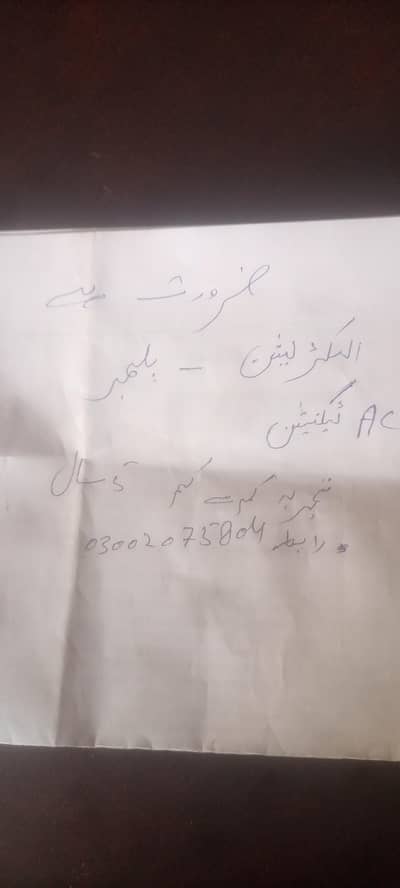 ضرورت ہے
الیکٹریشن - پلمبر
AC ٹیکنیشن
تجربہ کم سے کم 5 سال
رابطہ 03002075804